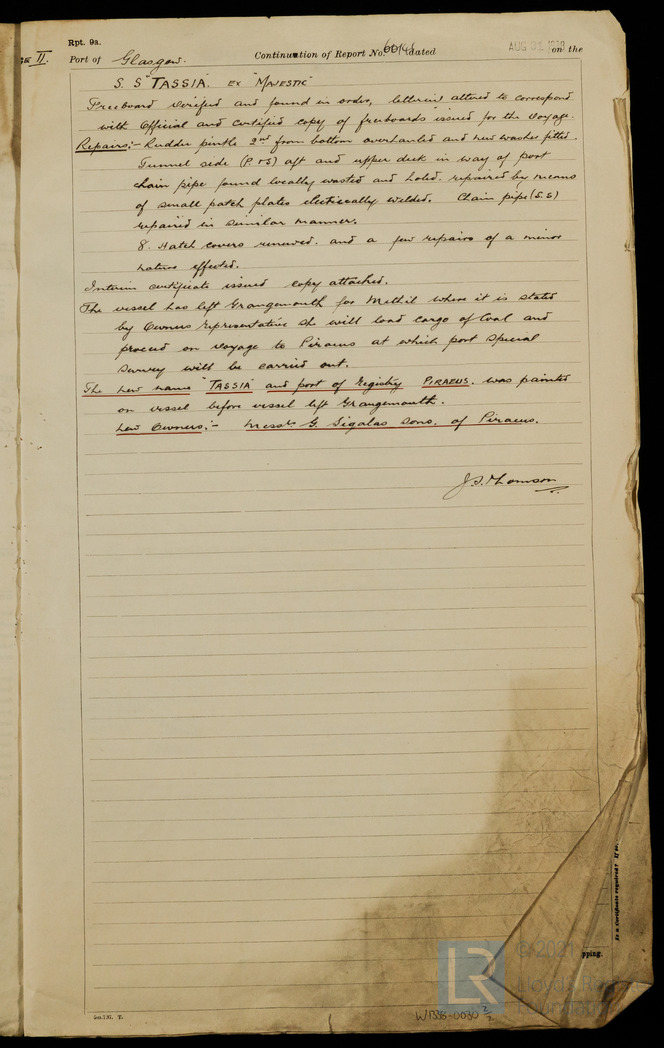 Rpt. 9a.
II.
Port of Glasgow. Continuation of Report No. dated AUG 31 on the
S.S "TASSIA" EX "MAJESTIC"
Freeboard verified and found in order, lettering altered to correspond
with Official and certified copy of freeboards issued for the voyage.
Repairs:- Rudder pintle 2nd from bottom overhauled and new washer fitted.
Tunnel side (P & S) aft and upper deck in way of port
chain pipe found locally wasted and holed. repaired by means
of small patch plates electrically welded. Chain pipe (S.S)
repaired in similar manner.
8. Hatch covers renewed. and a few repairs of a minor
nature effected.
Interim certificate issued copy attached.
The vessel has left Grangemouth for Methil where it is stated
by Owners representative she will load cargo of Coal and
proceed on voyage to Piraeus at which port Special
Survey will be carried out.
The new name "TASSIA" and port of Registry PIRAEUS. was painted
on vessel before vessel left Grangemouth.
New Owners:- Messrs G. Sigalas Sons. of Piraeus.
J.S. Thomson
Is a Certificate required? If so,
pping.
© 2021
LR
Lloyd's Register
Foundation
W1338-0030 2/2